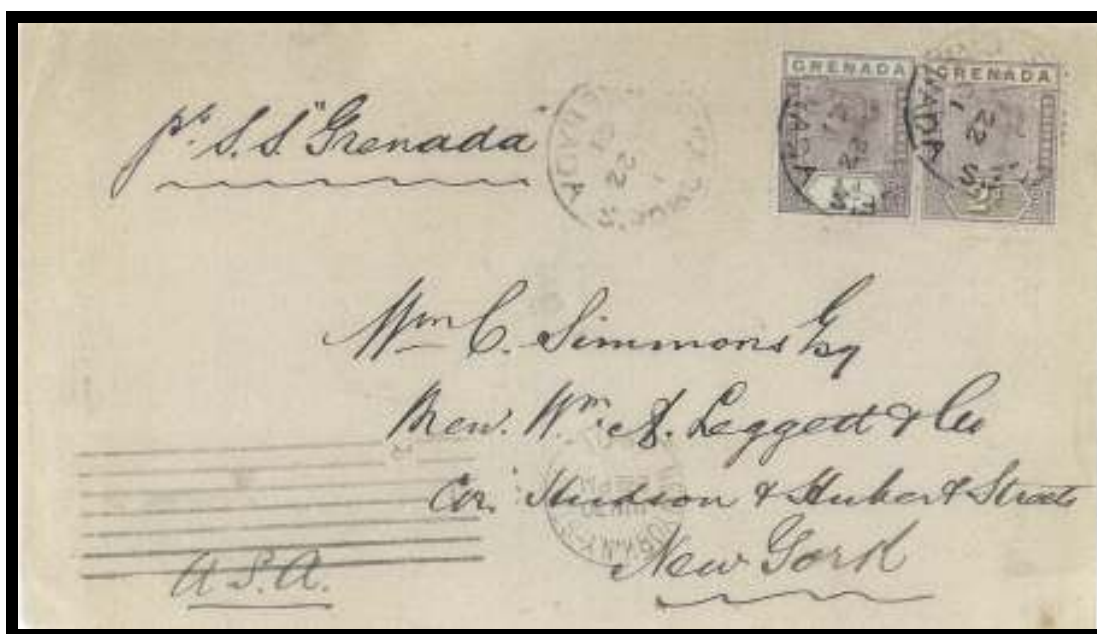 GRENADA GRENADA
pr S.S. "Grenada"
Wm C. Simmons Esq
Wm A. Leggett & Co
Cor. Hudson & Hubert Streets
New York
U.S.A.